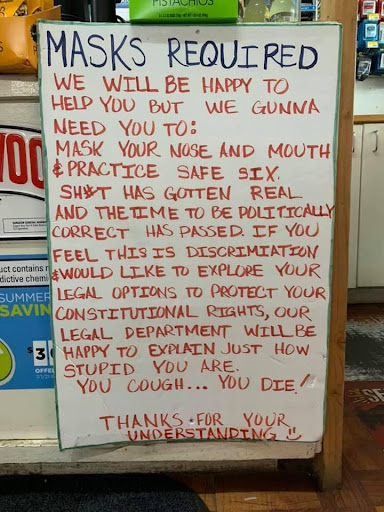 PISTACHIOS
MASKS REQUIRED
WE WILL BE HAPPY TO
HELP YOU BUT WE GUNNA
NEED YOU TO:
MASK YOUR NOSE AND MOUTH
& PRACTICE SAFE SIX.
SH#T HAS GOTTEN REAL
AND THE TIME TO BE POLITICALLY
CORRECT HAS PASSED. IF YOU
FEEL THIS IS DISCRIMIATION
& WOULD LIKE TO EXPLORE YOUR
LEGAL OPTIONS TO PROTECT YOUR
CONSTITUTIONAL RIGHTS, OUR
LEGAL DEPARTMENT WILL BE
HAPPY TO EXPLAIN JUST HOW
STUPID YOU ARE.
YOU COUGH... YOU DIE!
THANKS FOR YOUR
UNDERSTANDING
SUMMER
SAVIN